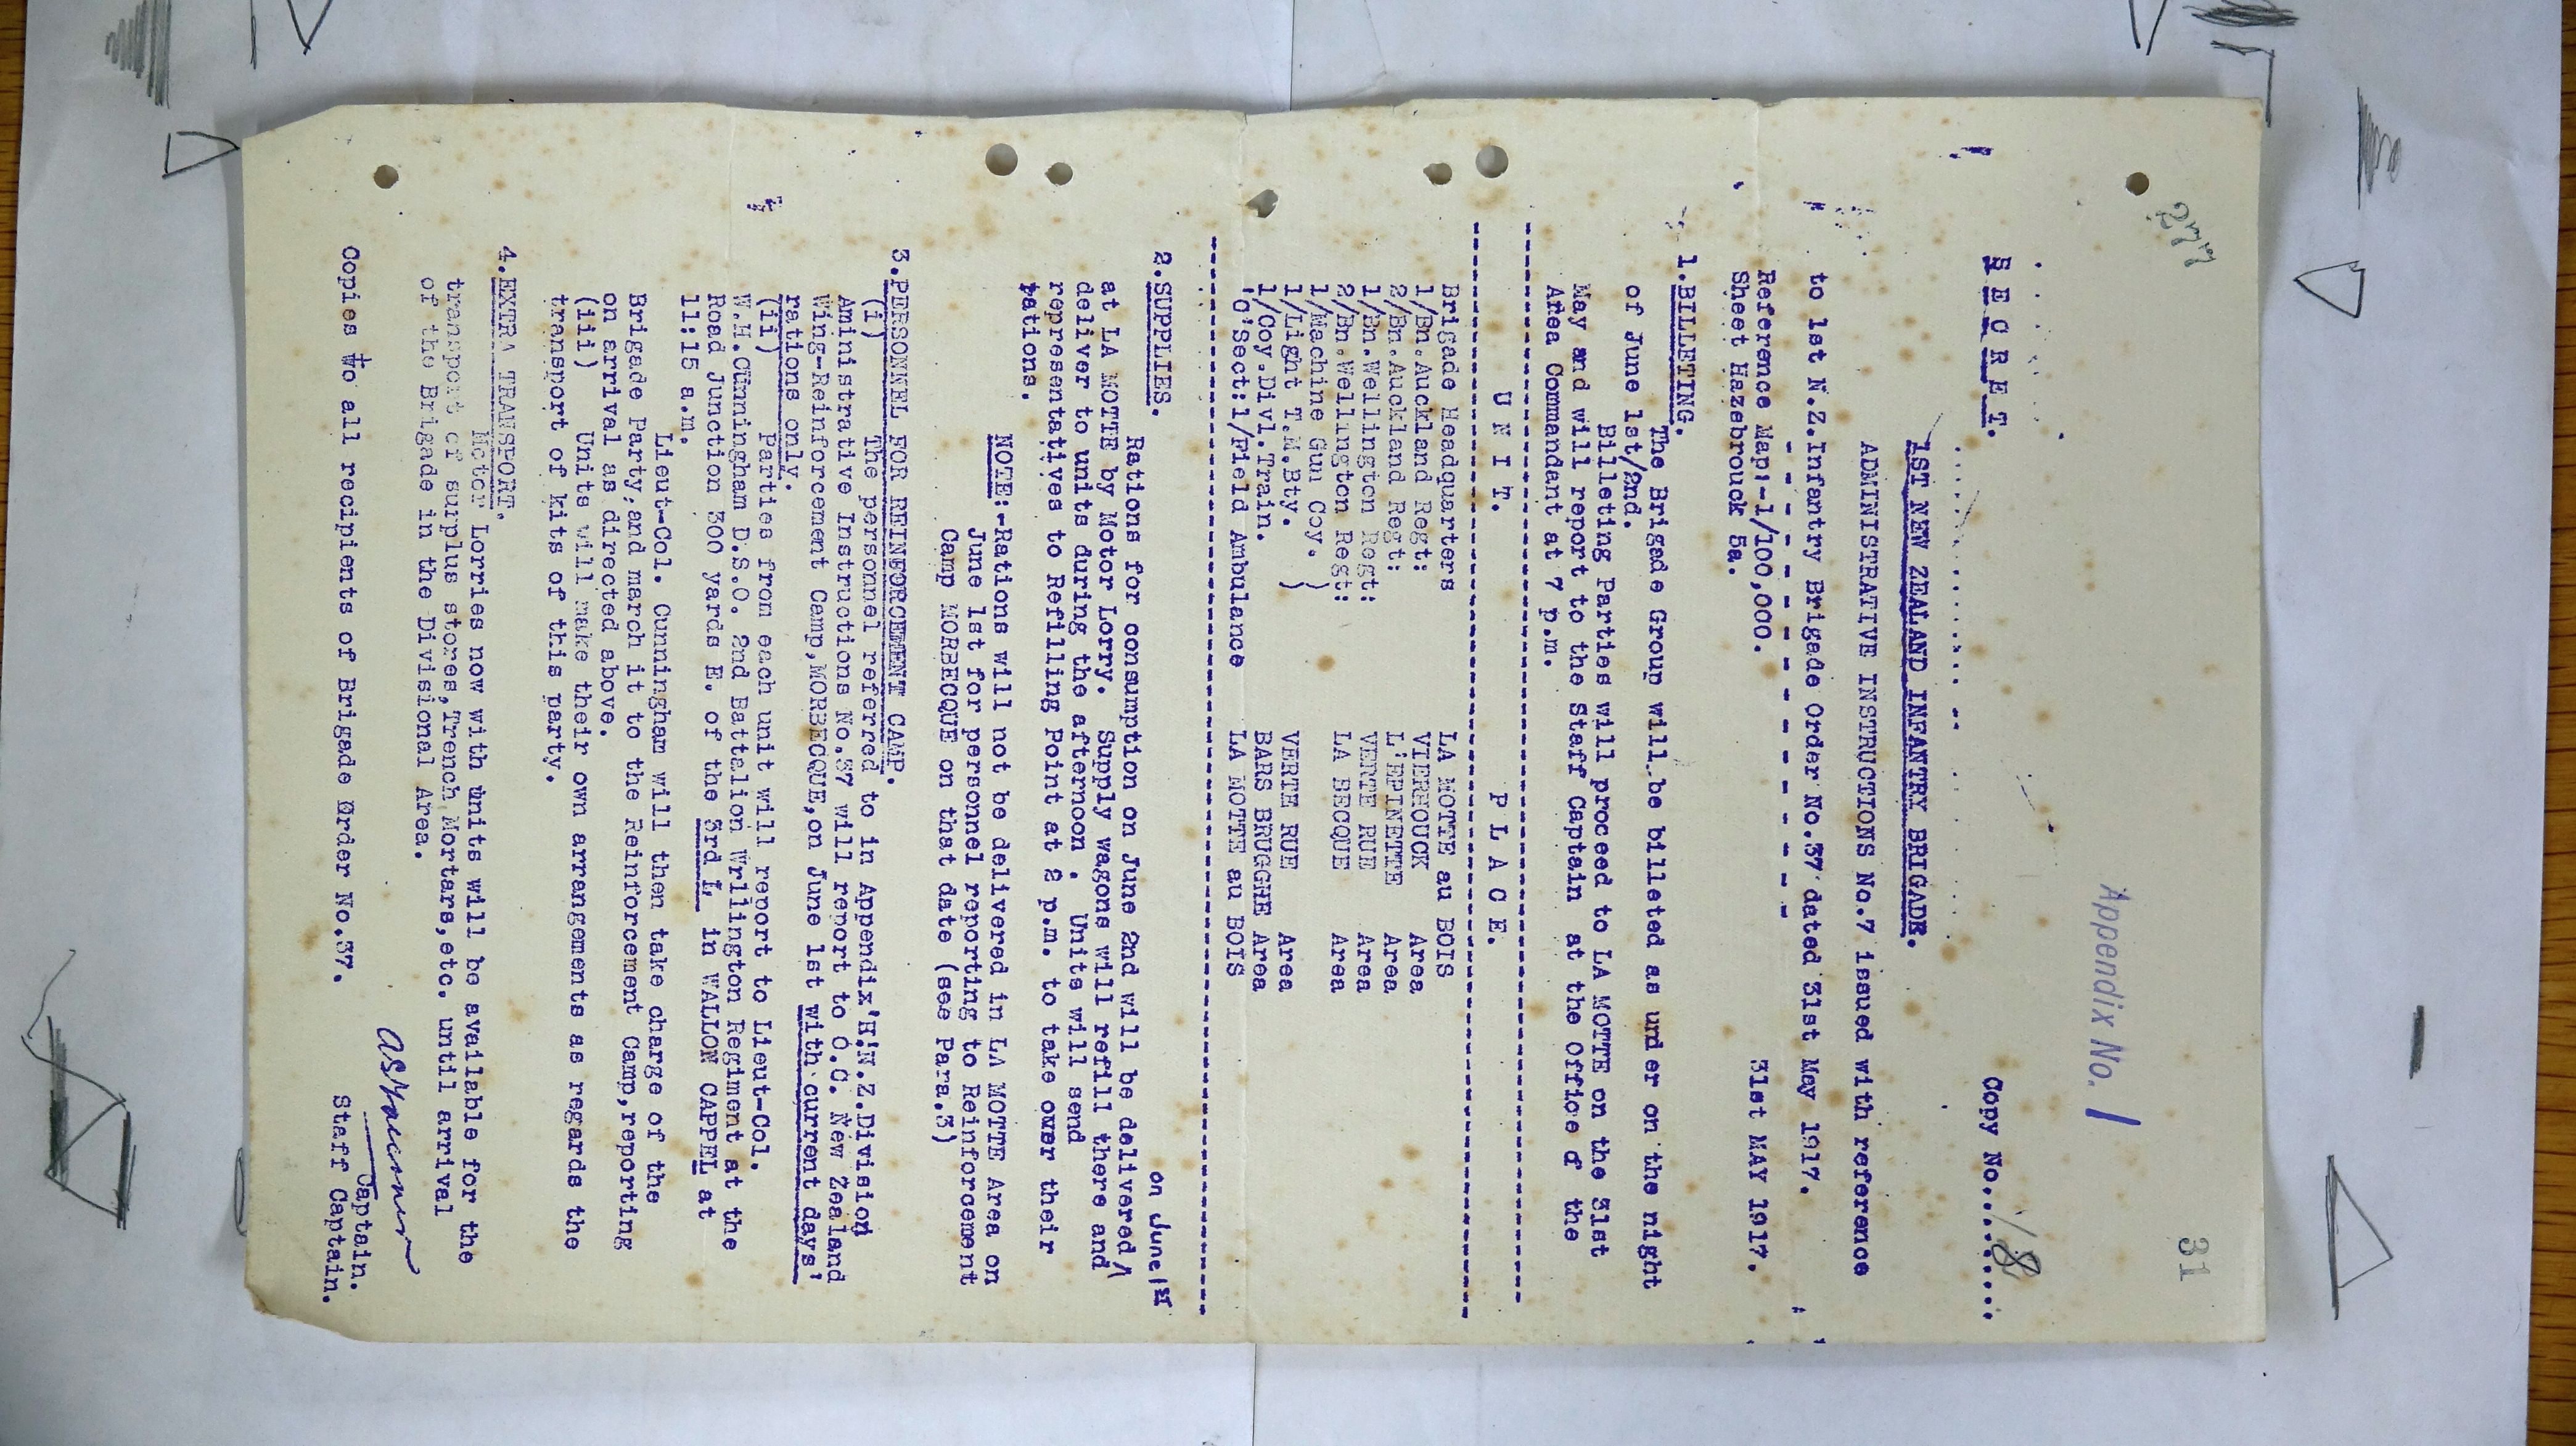 277
31
Appendix No. 1
S E C R E T.
Copy No. 18
1ST NEW ZEALAND INFANTRY BRIGADE.
ADMINISTRATIVE INSTRUCTIONS No.7 issued with reference
to 1st N.Z.Infantry Brigade Order No.37 dated 31st May 1917.
Reference Map:-1/100,000.
Sheet Hazebrouck 5a.
31st MAY 1917.
1.BILLETING.
The Brigade Group will be billeted as under on the night
of June 1st/2nd.
Billeting Parties will proceed to LA MOTTE on the 31st
May and will report to the Staff Captain at the Office of the
Area Commandant at 7 p.m.
U N I T. P L A C E.
Brigade Headquarters LA MOTTE au BOIS
1/Bn.Auckland Regt: VIERHOUCK Area
2/Bn.Auckland Regt: L'EPINETTE Area
1/Bn.Wellington Regt: VERTE RUE Area
2/Bn.Wellington Regt: LA BECQUE Area
1/Machine Gun Coy. )
1/Light T.M.Bty. ) VERTE RUE Area
1/Coy.Divl.Train. BARS BRUGGHE Area
'C'Sect:1/Field Ambulance LA MOTTE au BOIS
2.SUPPLIES.
on June 1st
Rations for consumption on June 2nd will be delivered/
at LA MOTTE by Motor Lorry. Supply wagons will refill there and
deliver to units during the afternoon . Units will send
representatives to Refilling Point at 2 p.m. to take over their
rations.
NOTE:-Rations will not be delivered in LA MOTTE Area on
June 1st for personnel reporting to Reinforcement
Camp MORBECQUE on that date (see Para.3)
3.PERSONNEL FOR REINFORCEMENT CAMP.
(i) The personnel referred to in Appendix'H'N.Z.Division
Aministrative Instructions No.37 will report to O.C. New Zealand
Wing-Reinforcement Camp,MORBECQUE,on June 1st with current days'
rations only.
(ii) Parties from each unit will report to Lieut-Col.
W.H.Cunningham D.S.O. 2nd Battalion Wellington Regiment at the
Road Junction 300 yards E. of the 3rd L in WALLON CAPPEL at
11:15 a.m.
Lieut-Col. Cunningham will then take charge of the
Brigade Party;and march it to the Reinforcement Camp,reporting
on arrival as directed above.
(iii) Units will make their own arrangements as regards the
transport of kits of this party.
4.EXTRA TRANSPORT.
Motor Lorries now with units will be available for the
transport of surplus stores,Trench Mortars,etc. until arrival
of the Brigade in the Divisional Area.
Captain.
Copies to all recipients of Brigade Order No.37. Staff Captain.